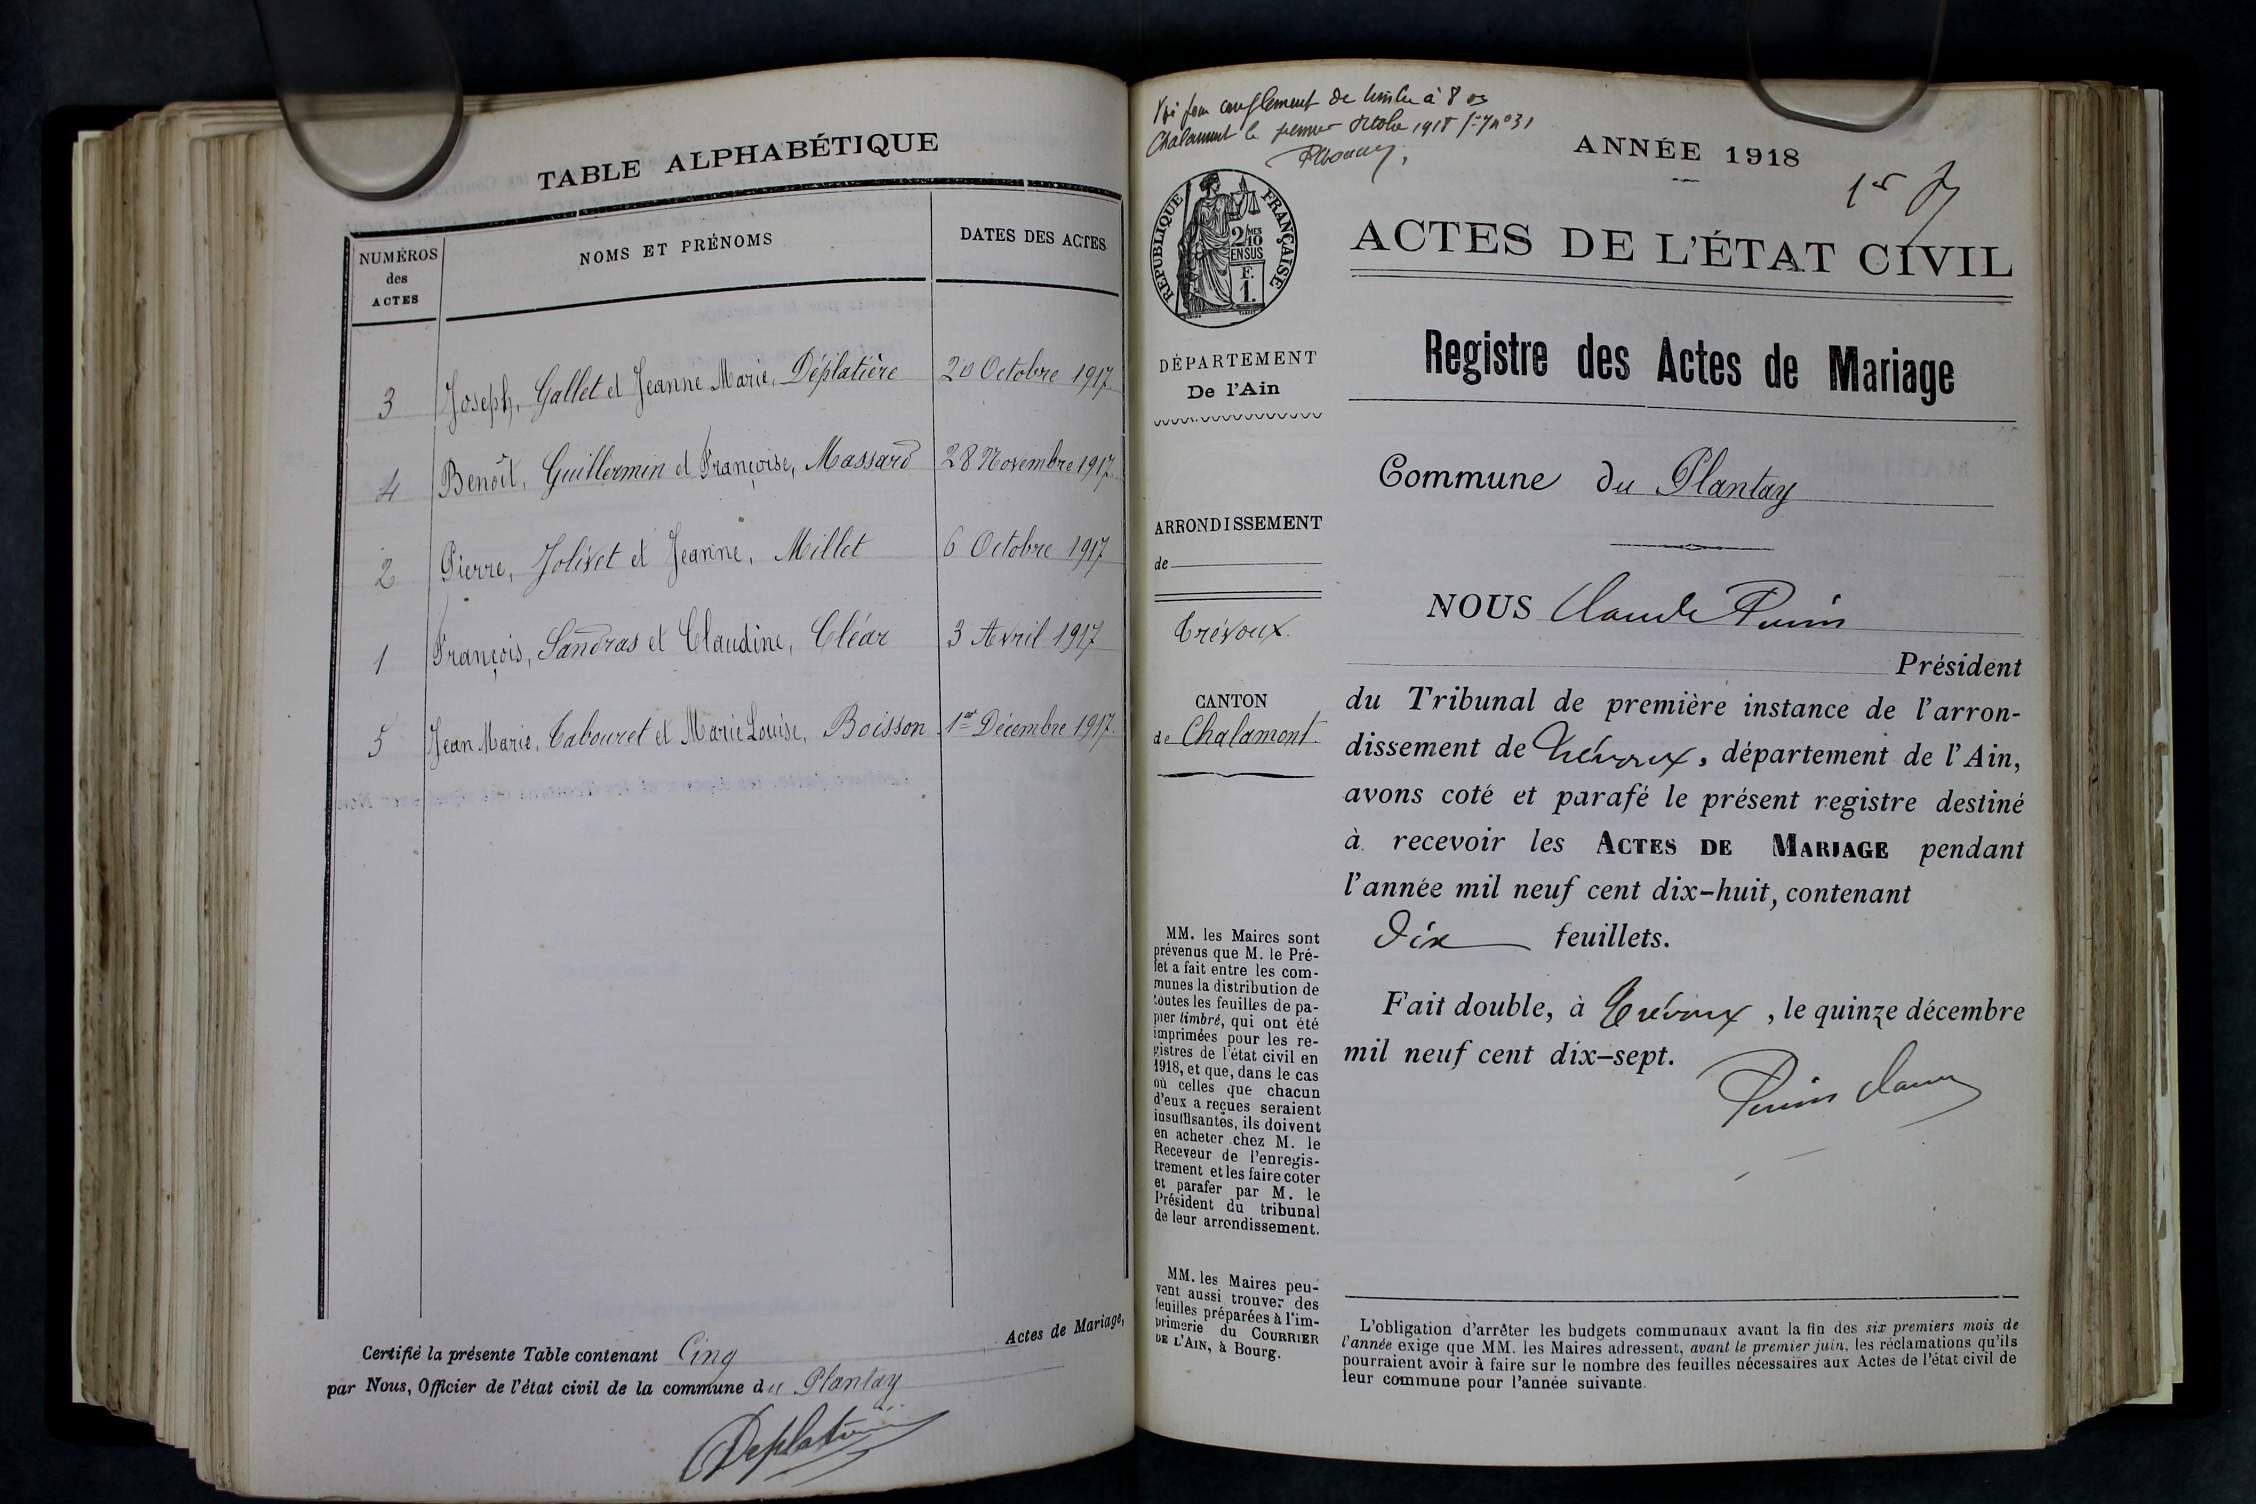 TABLE ALPHABÉTIQUE
NUMÉROS des ACTES
NOMS ET PRÉNOMS
DATES DES ACTES
3 Joseph, Gallet et Jeanne Marie, Déplatière 20 Octobre 1917
4 Benoît, Guillermin et Françoise, Massard 28 Novembre 1917
2 Pierre, Jolivet et Jeanne, Millet 6 Octobre 1917
1 François, Sandras et Claudine, Cléar 3 Avril 1917
5 Jean Marie, Tabouret et Marie Louise, Boisson 1er Décembre 1917
Certifié la présente Table contenant Cinq Actes de Mariage,
par Nous, Officier de l'état civil de la commune du Plantay
Deplatière
de timbre à 8
Chalamont le premier Octobre 1918 n° 31
RÉPUBLIQUE FRANÇAISE
2/10 MES
EN SUS
F.
1.
DÉPARTEMENT
De l'Ain
ARRONDISSEMENT
de
Trévoux.
CANTON
de Chalamont
MM. les Maires sont
prévenus que M. le Pré-
fet a fait entre les com-
munes la distribution de
toutes les feuilles de pa-
pier timbré, qui ont été
imprimées pour les re-
gistres de l'état civil en
1918, et que, dans le cas
où celles que chacun
d'eux a reçues seraient
insuffisantes, ils doivent
en acheter chez M. le
Receveur de l'enregis-
trement et les faire coter
et parafer par M. le
Président du tribunal
de leur arrondissement.
MM. les Maires peu-
vent aussi trouver des
feuilles préparées à l'im-
primerie du COURRIER
DE L'AIN, à Bourg.
ANNÉE 1918
1er
ACTES DE L'ÉTAT CIVIL
Registre des Actes de Mariage
Commune du Plantay
NOUS Claude
Président
du Tribunal de première instance de l'arron-
dissement de Trévoux, département de l'Ain,
avons coté et parafé le présent registre destiné
à recevoir les ACTES DE MARIAGE pendant
l'année mil neuf cent dix-huit, contenant
Dix feuillets.
Fait double, à Trévoux, le quinze décembre
mil neuf cent dix-sept.
L'obligation d'arrêter les budgets communaux avant la fin des six premiers mois de
l'année exige que MM. les Maires adressent, avant le premier juin, les réclamations qu'ils
pourraient avoir à faire sur le nombre des feuilles nécessaires aux Actes de l'état civil de
leur commune pour l'année suivante.